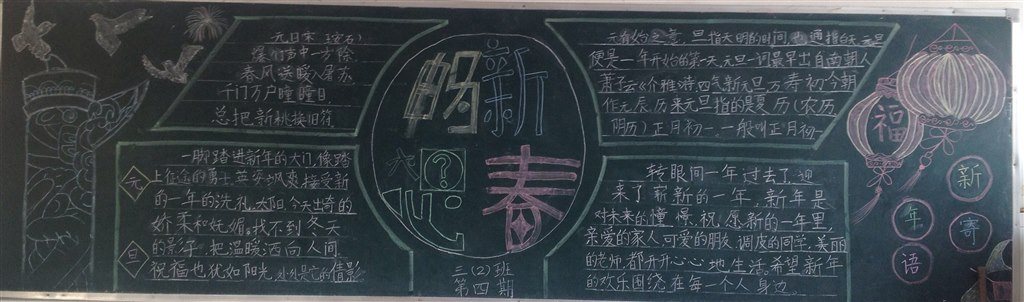 元日 宋 王安石
爆竹声中一岁除
春风送暖入屠苏
千门万户曈曈日
总把新桃换旧符
一脚踏进新年的大门,像踏
上征途的勇士,英姿飒爽,接受新
的一年的洗礼。太阳今天出奇的
娇柔和妩媚。找不到冬天
的影。把温暖洒向人间
祝福也犹如阳光,
元
旦
新
春
?
三(2)班
第四期
元有始之意,旦指天明的时间,也通指白天,元旦
便是一年开始的第一天,元旦一词最早出自南朝人
萧子云《介雅诗》四气新元旦万寿初今朝
作元辰,历来元旦指的是夏历(农历
阴历)正月初一,一般叫正月初一
转眼间一年过去了,迎
来了崭新的一年,新年是
对未来的憧憬,祝愿新的一年里,
亲爱的家人,可爱的朋友,调皮的同学,美丽
的老师都开开心心地生活。希望新年
的欢乐围绕在每一个人身边。
福
新
年
寄
语